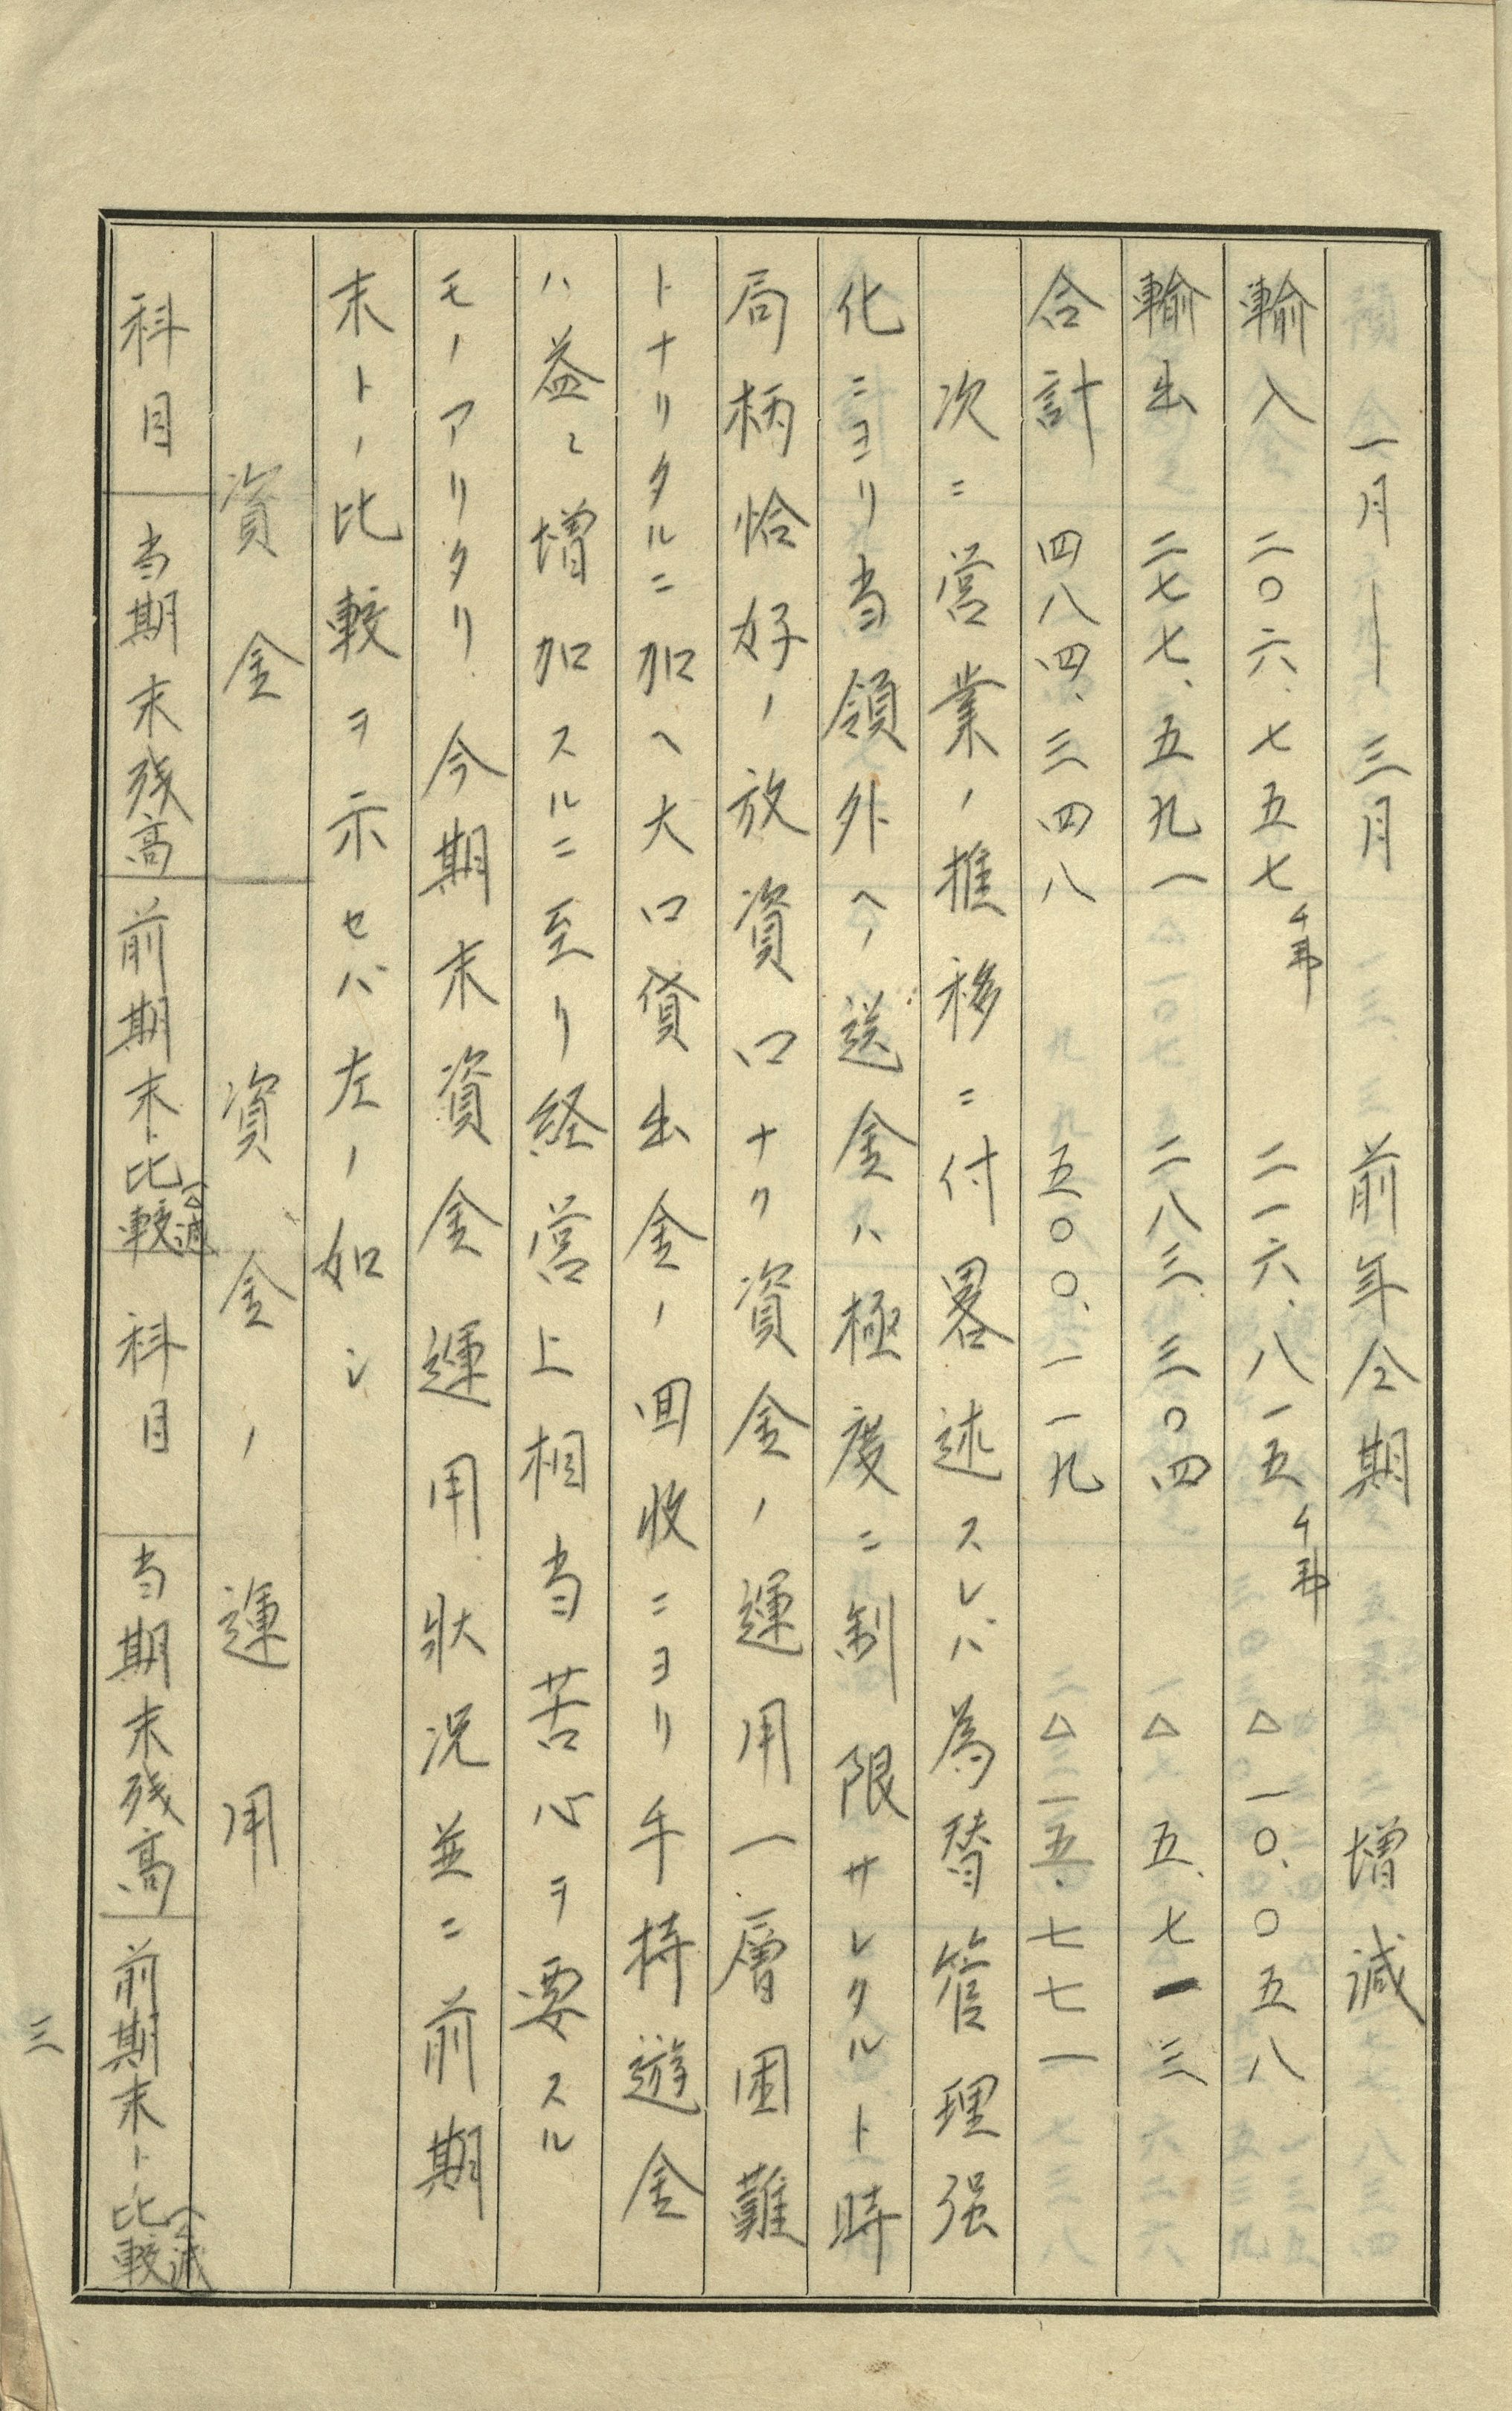 一月——三月　前年仝期　増減
輸入　二〇六、七五七千弗　二一六、八一五千弗　△一〇、〇五八
輸出　二七七、五九一　二八三、三〇四　△五、七一三
合計　四八四、三四八　五〇〇、一一九　△一五、七七一
次ニ営業ノ推移ニ付畧述スレバ為替管理强
化ニヨリ当領外ヘノ送金ハ極度ニ制限サレタルト時
局柄恰好ノ放資口ナク資金ノ運用一層困難
トナリタルニ加ヘ大口貸出金ノ回收ニヨリ手持遊金
ハ益〻増加スルニ至リ経営上相当苦心ヲ要スル
モノアリタリ今期末資金運用狀況並ニ前期
末トノ比較ヲ示セバ左ノ如シ
資金　資金ノ運用
科目　当期末残高　前期末ト比較（△減）　科目　当期末残高　前期末ト比較（△減）
三